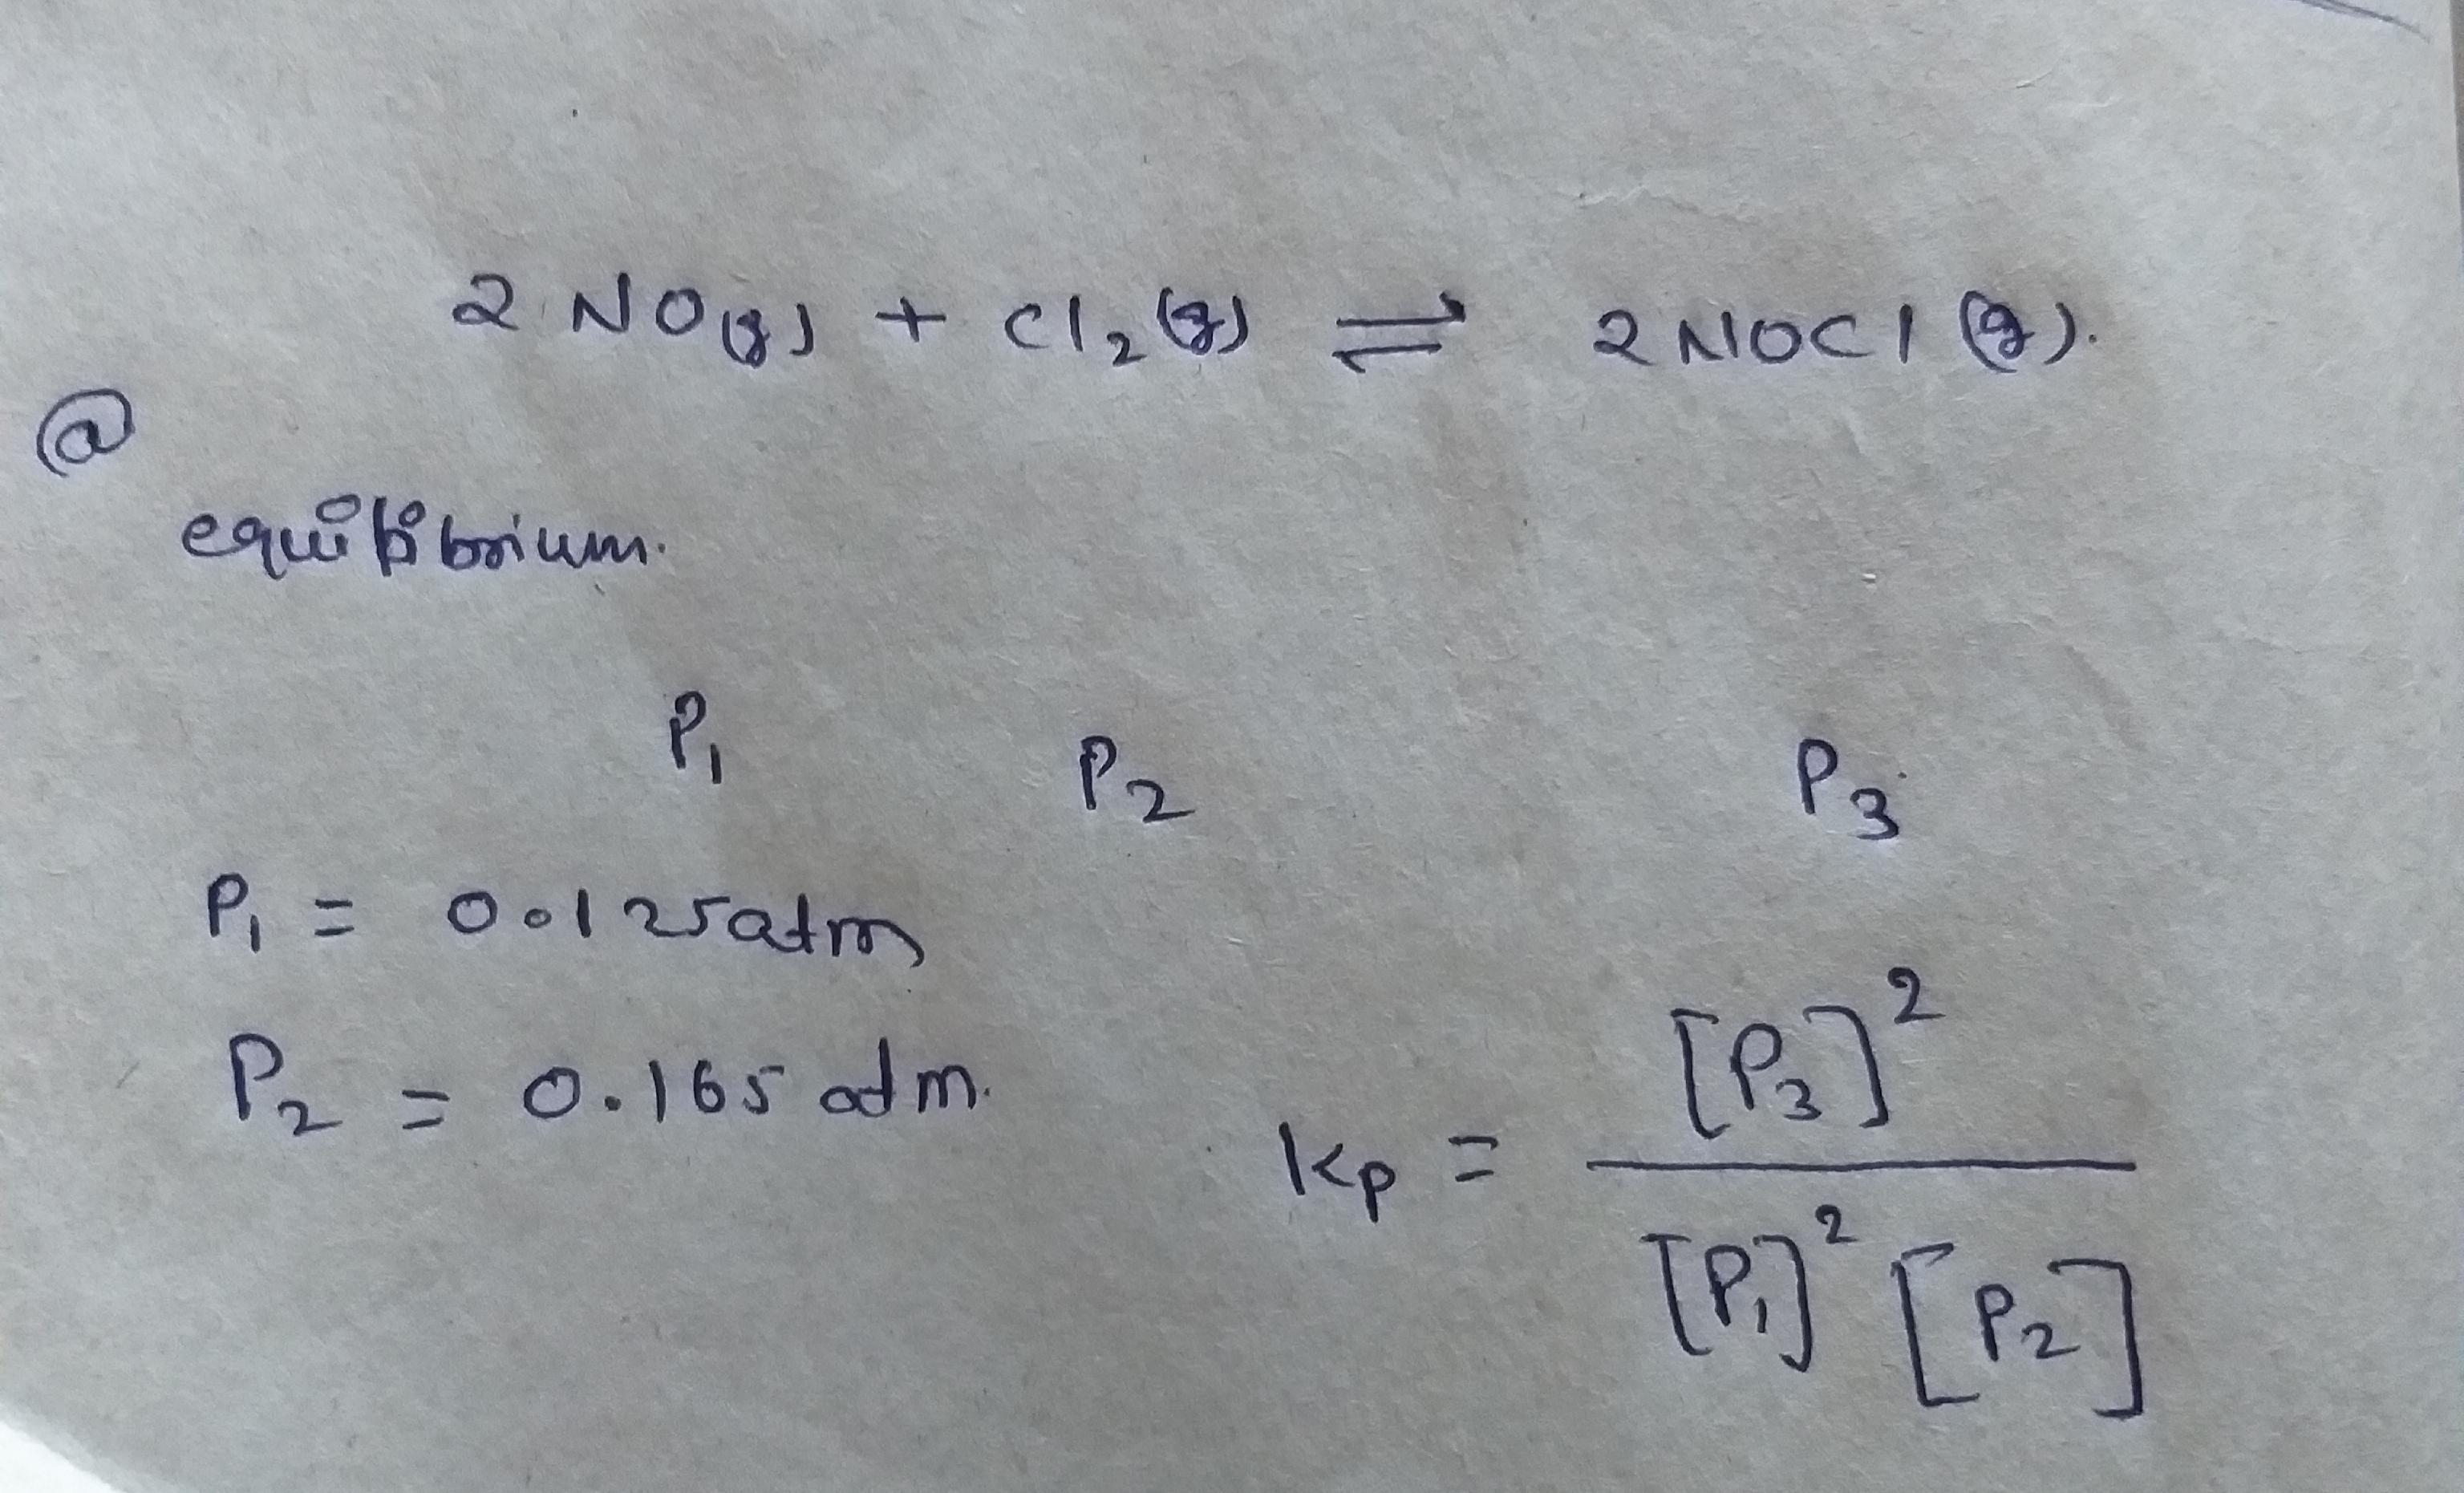 2 NO(g) + Cl₂ (g) ⇌ 2 NOCl (g).
@
equilibrium.
P₁ P₂ P₃
P₁ = 0.125atm
P₂ = 0.165 atm.
Kp = [P₃]² / [P₁]² [P₂]